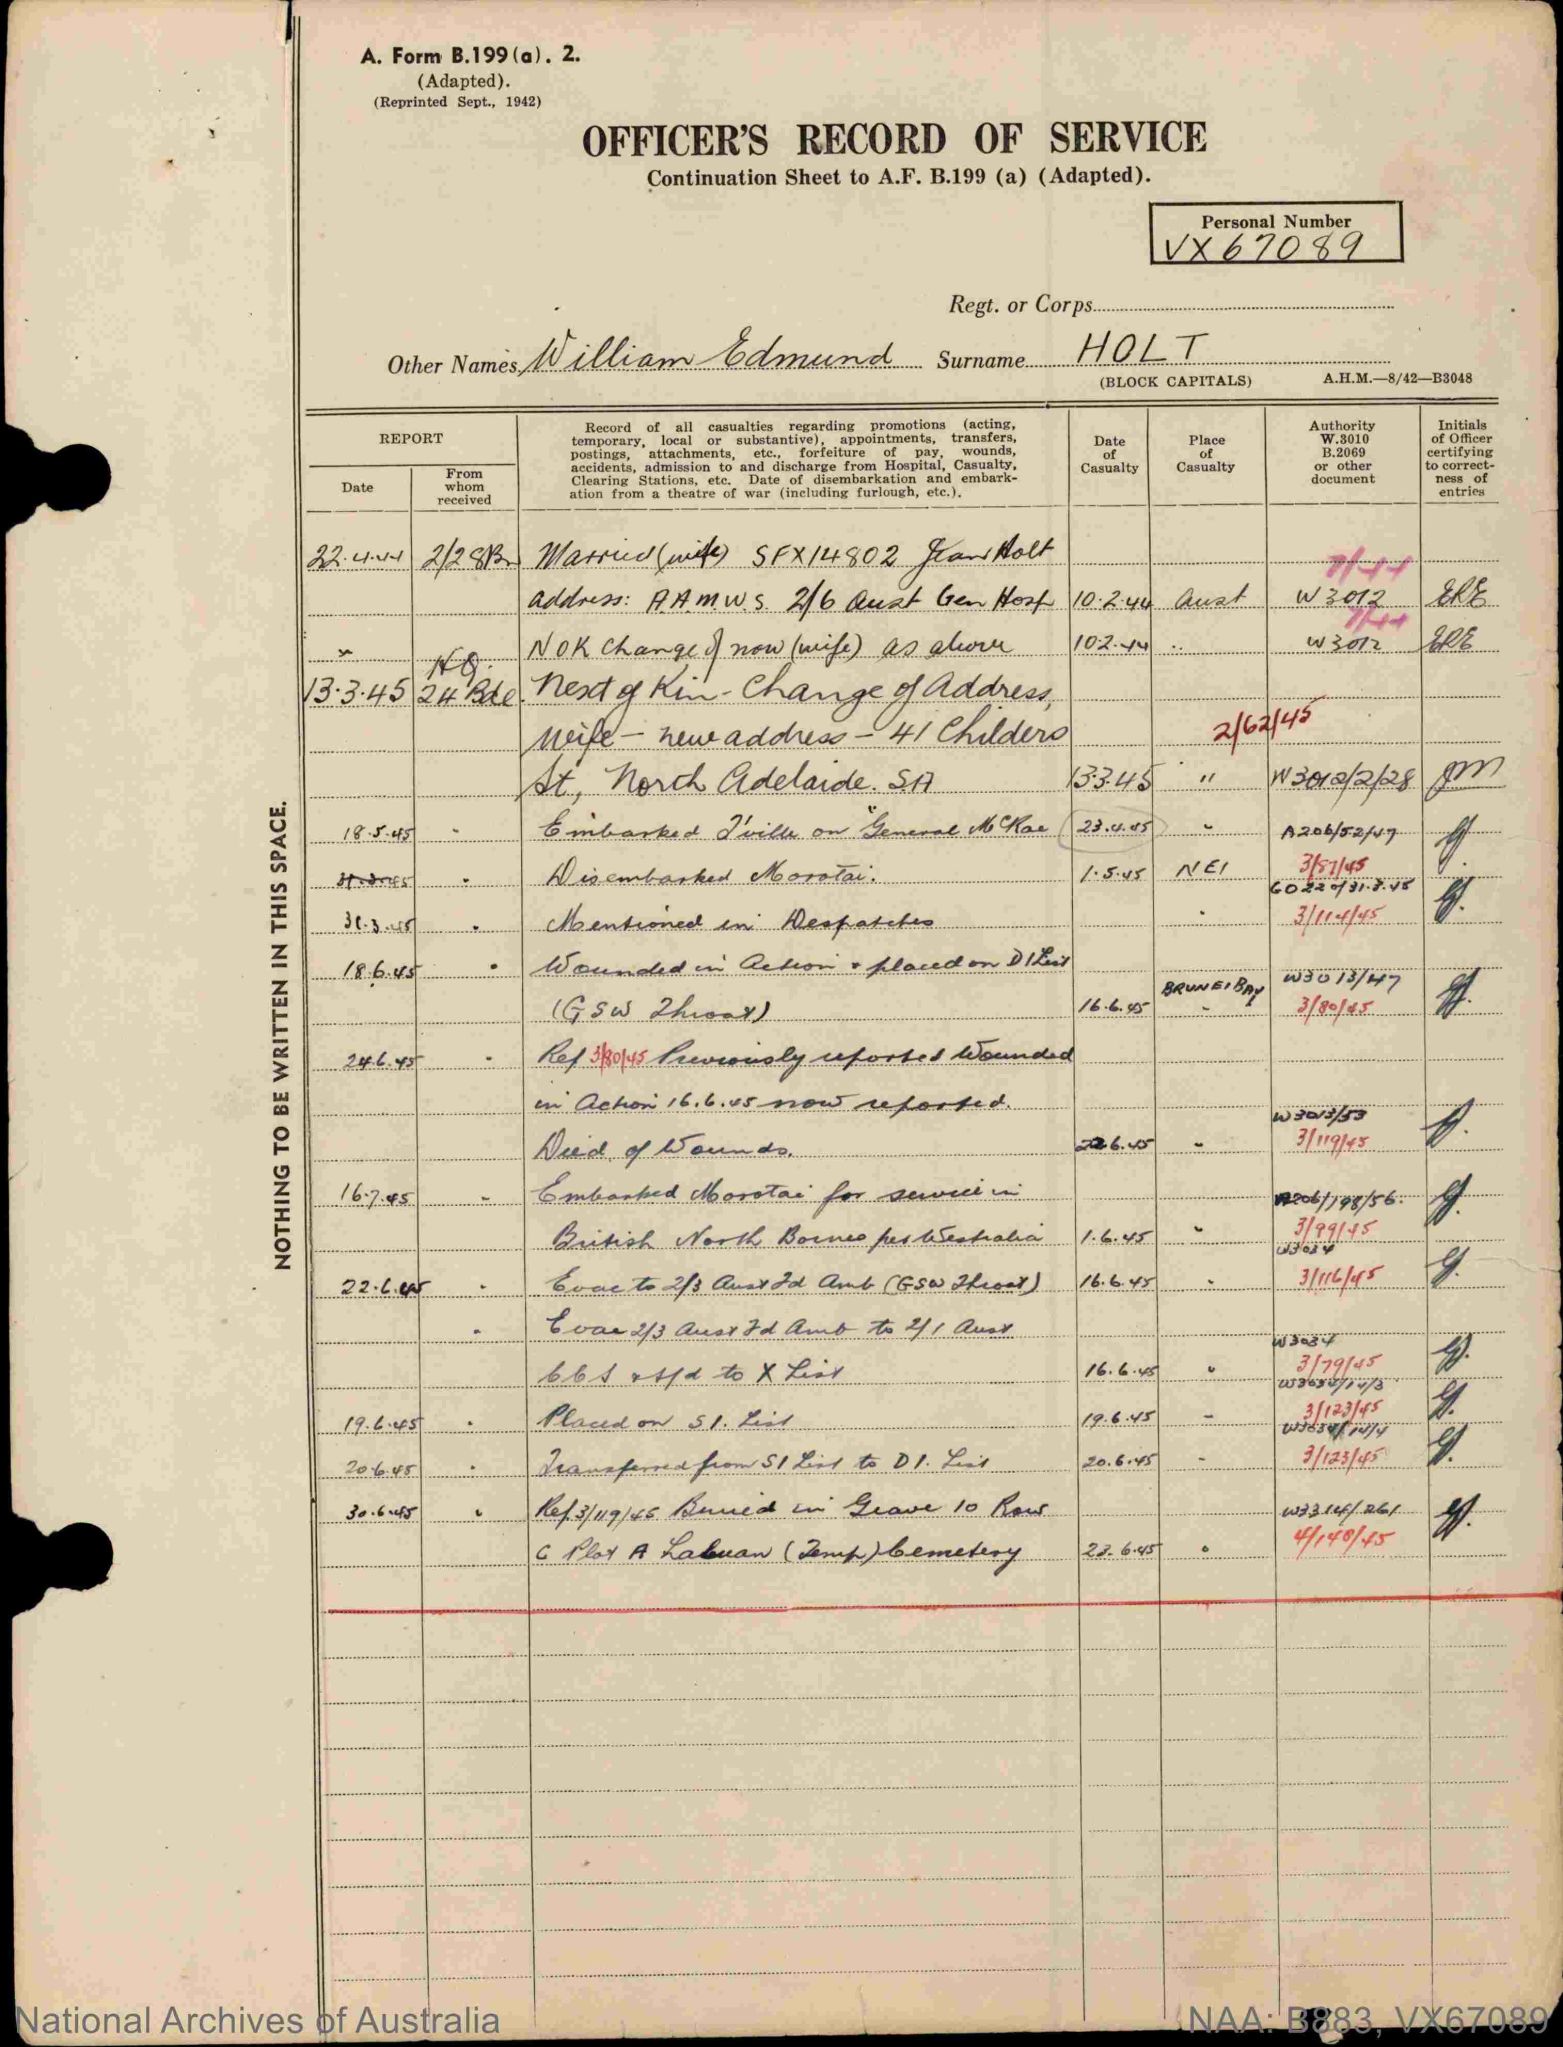 A. Form B.199 (a). 2.
(Adapted).
(Reprinted Sept., 1942)
OFFICER'S RECORD OF SERVICE
Continuation Sheet to A.F. B.199 (a) (Adapted).
Personal Number
VX67089
Regt. or Corps
Other Names William Edmund Surname HOLT
(BLOCK CAPITALS) A.H.M.—8/42—B3048
NOTHING TO BE WRITTEN IN THIS SPACE.
REPORT
Date
From whom received
Record of all casualties regarding promotions (acting,
temporary, local or substantive), appointments, transfers,
postings, attachments, etc., forfeiture of pay, wounds,
accidents, admission to and discharge from Hospital, Casualty,
Clearing Stations, etc. Date of disembarkation and embark-
ation from a theatre of war (including furlough, etc.).
Date of Casualty
Place of Casualty
Authority W.3010 B.2069 or other document
Initials of Officer certifying to correct-ness of entries
22.4.44 2/28 Bn Married (wife) SFX14802 Jean Holt
7/44
address: A.A.M.W.S. 2/6 Aust Gen Hosp 10.2.44 Aust W3012 ERE
7/44
" NOK change of now (wife) as above 10.2.44 " W3012 ERE
HQ.
13.3.45 24 Bde. Next of Kin - Change of Address,
wife - new address - 41 Childers 2/62/45
St, North Adelaide. SA 13.3.45 " W3012/2/28
18.5.45 " Embarked T'ville on "General McRae 23.4.45 " A206/52/47
31.3.45 " Disembarked Morotai. 1.5.45 NEI 3/87/45
GO220/31.3.45
31.3.45 " Mentioned in Despatches " 3/114/45
18.6.45 " Wounded in Action & placed on DI List W3013/47
BRUNEI BAY
(GSW Throat) 16.6.45 " 3/80/45
24.6.45 " Ref 3/80/45 Previously reported Wounded
in Action 16.6.45 now reported. W3013/53
Died of Wounds. 22.6.45 " 3/119/45
16.7.45 " Embarked Morotai for service in A206/198/56.
British North Borneo per Westralia 1.6.45 " 3/99/45
W3034
22.6.45 " Evac to 2/3 Aust Fd Amb (GSW Throat) 16.6.45 " 3/116/45
" Evac 2/3 Aust Fd Amb to 2/1 Aust W3034
CCS & t/fd to X List 16.6.45 " 3/79/45
W3034/14/3
19.6.45 " Placed on SI. List 19.6.45 " 3/123/45
W3034/14/4
20.6.45 " Transferred from SI List to DI. List 20.6.45 " 3/123/45
30.6.45 " Ref 3/119/45 Buried in Grave 10 Row W3314/261
C Plot A Labuan (Temp) Cemetery 23.6.45 " 4/140/45
National Archives of Australia
NAA: B883, VX67089